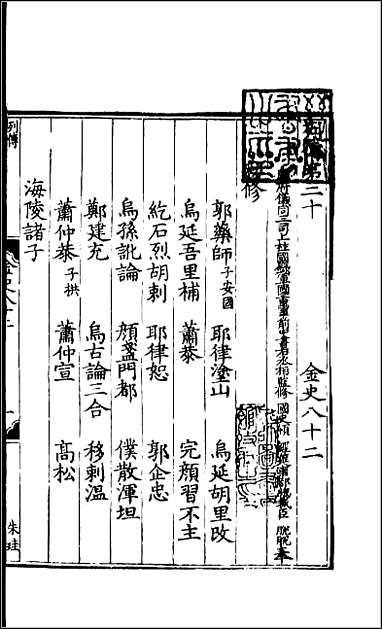 列傳第二十　金史八十二
開府儀同三司上柱國錄軍國重事前中書右丞相監修國史領經筵事都總裁臣脫脫奉
修
郭藥師子安國　耶律塗山　烏延胡里改
烏延吾里補　蕭恭　完顏習不主
紇石烈胡剌　耶律恕　郭企忠
烏孫訛論　顏盞門都　僕散渾坦
鄭建充　烏古論三合　移剌溫
蕭仲恭子拱　蕭仲宣　高松
海陵諸子
列傳
金史八十二
一
朱珪